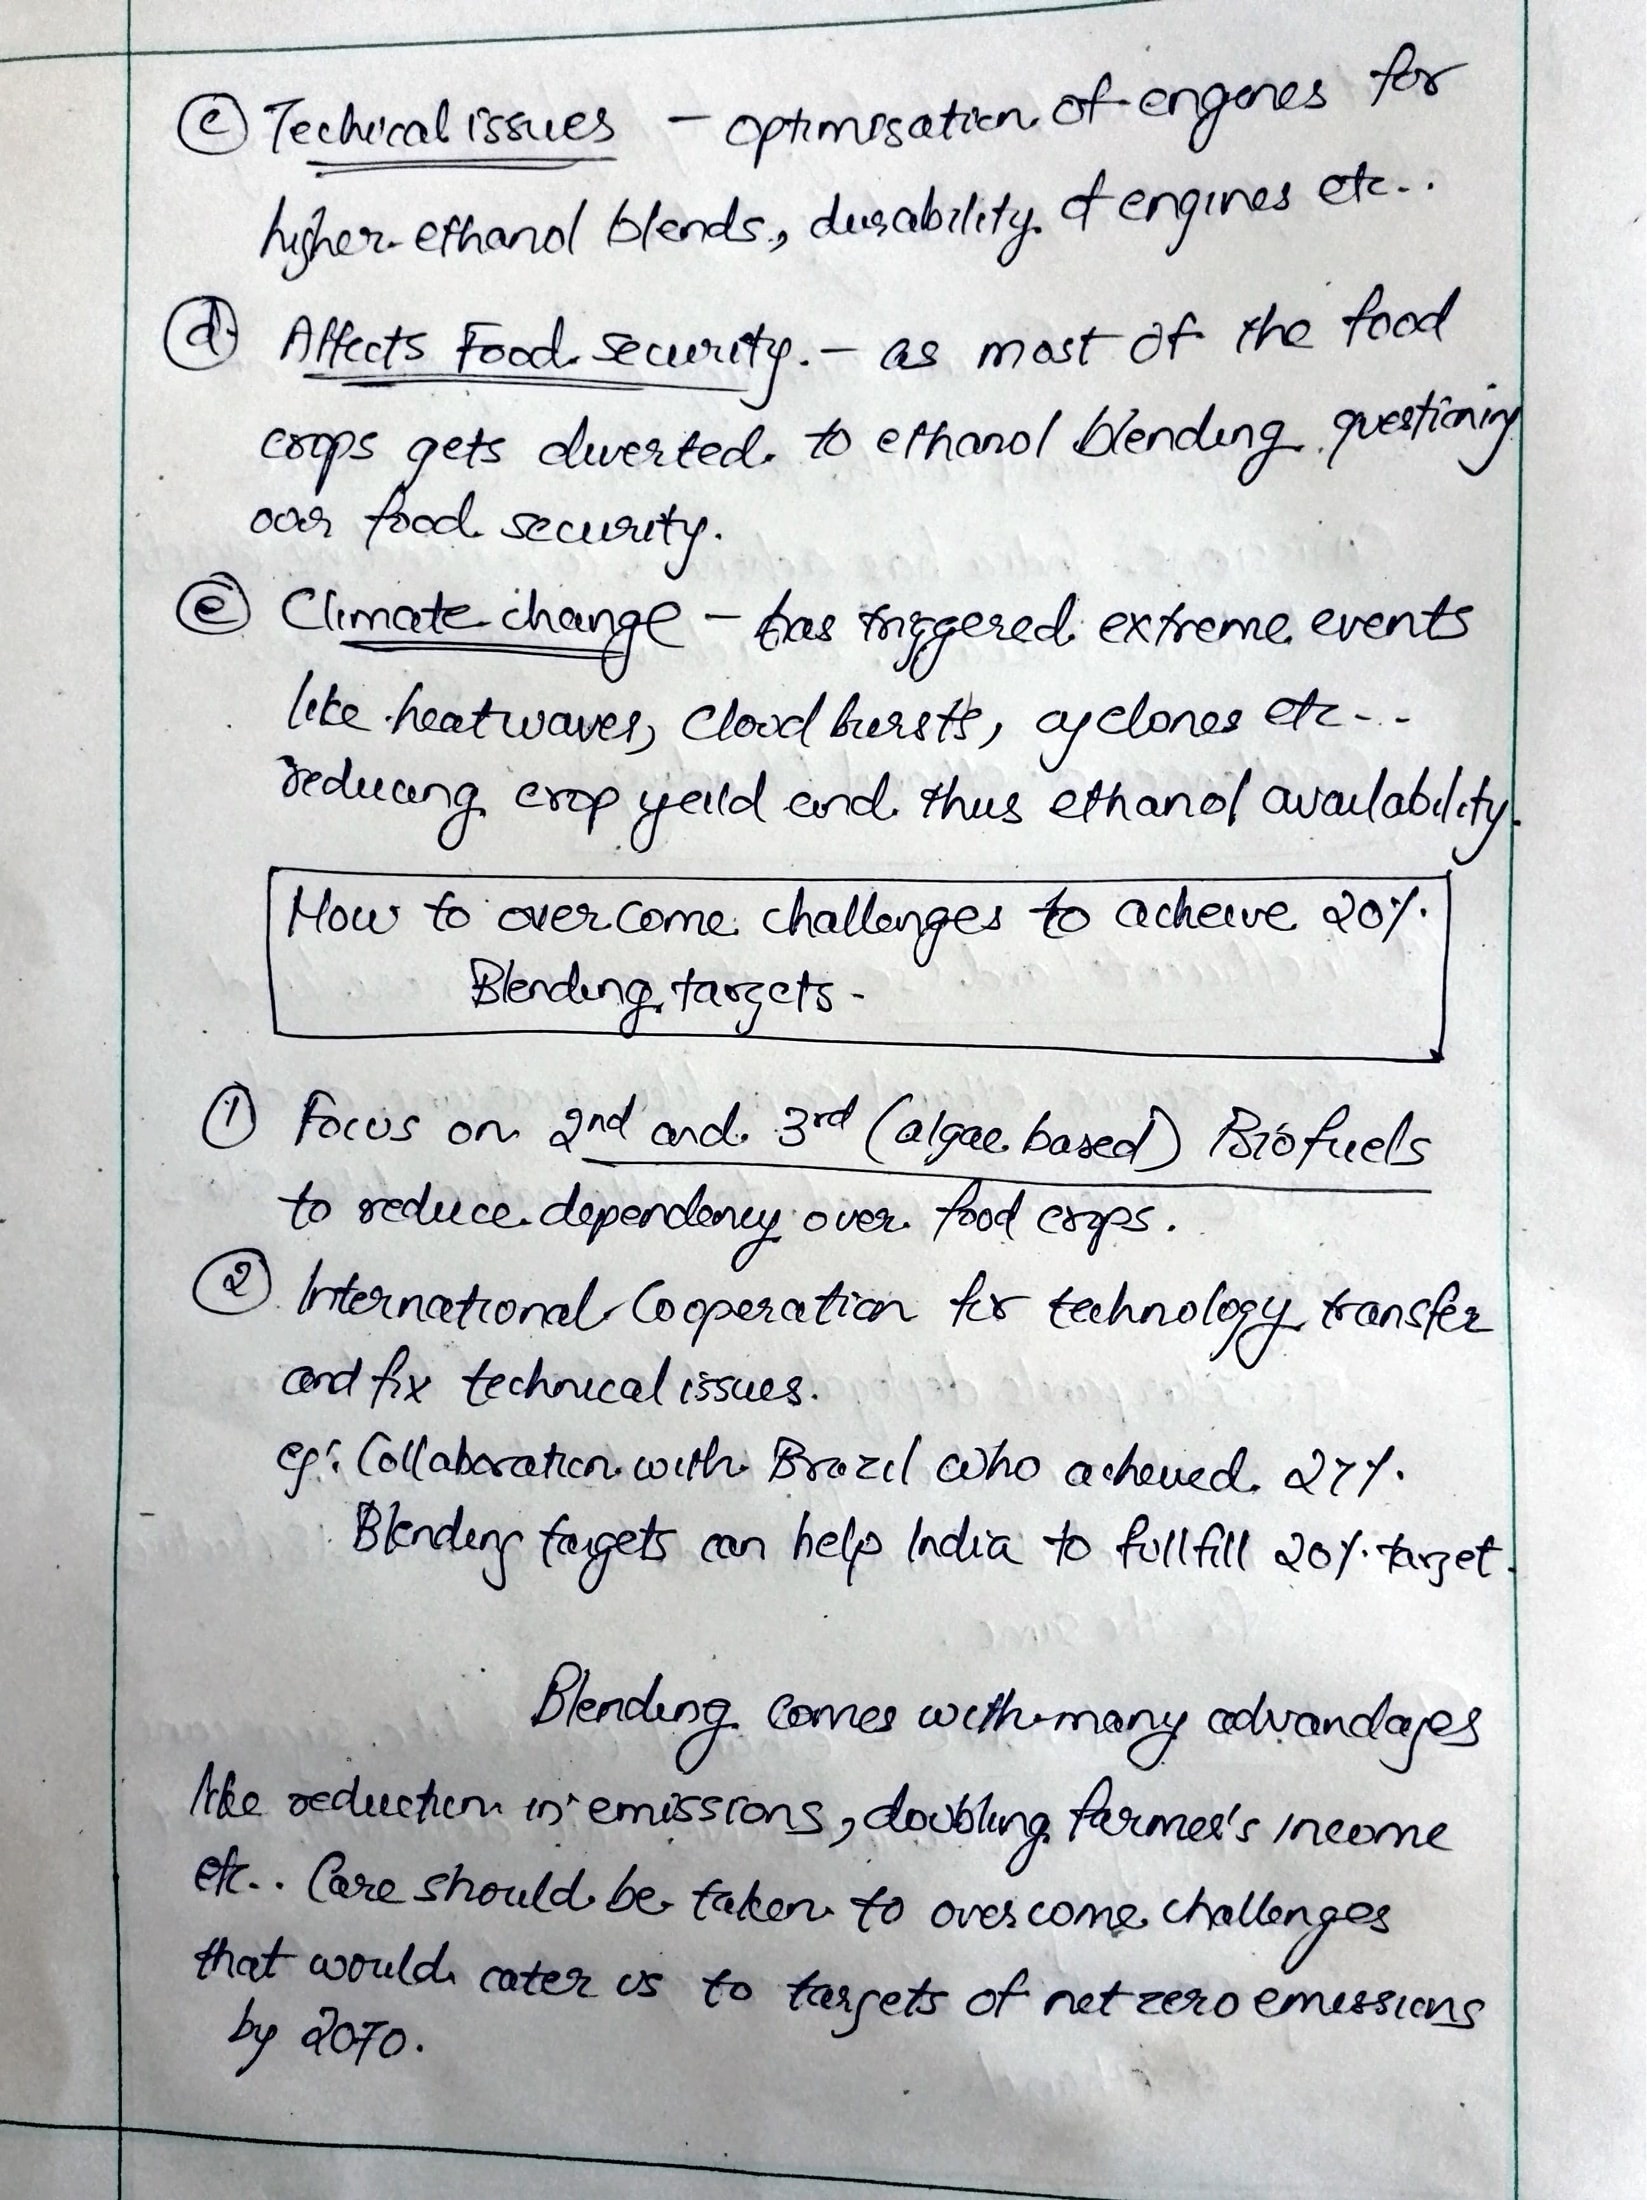 (c) Techical issues - optimisation of engines for
higher ethanol blends, durability of engines etc..
(d) Affects Food security. - as most of the food
crops gets diverted to ethanol blending questioning
our food security.
(e) Climate change - has triggered extreme events
like heatwaves, cloud bursts, cyclones etc...
reducing crop yeild and thus ethanol availability.
How to overcome challenges to acheive 20%
Blending targets -
(1) Focus on 2nd and 3rd (algae based) Biofuels
to reduce dependency over food crops.
(2) International Cooperation for technology transfer
and fix technical issues.
eg: Collaboration with Brazil who acheived 27%
Blending targets can help India to fullfill 20% target.
Blending comes with many advandages
like reduction in emissions, doubling farmer's income
etc.. Care should be taken to overcome challenges
that would cater us to targets of net zero emissions
by 2070.